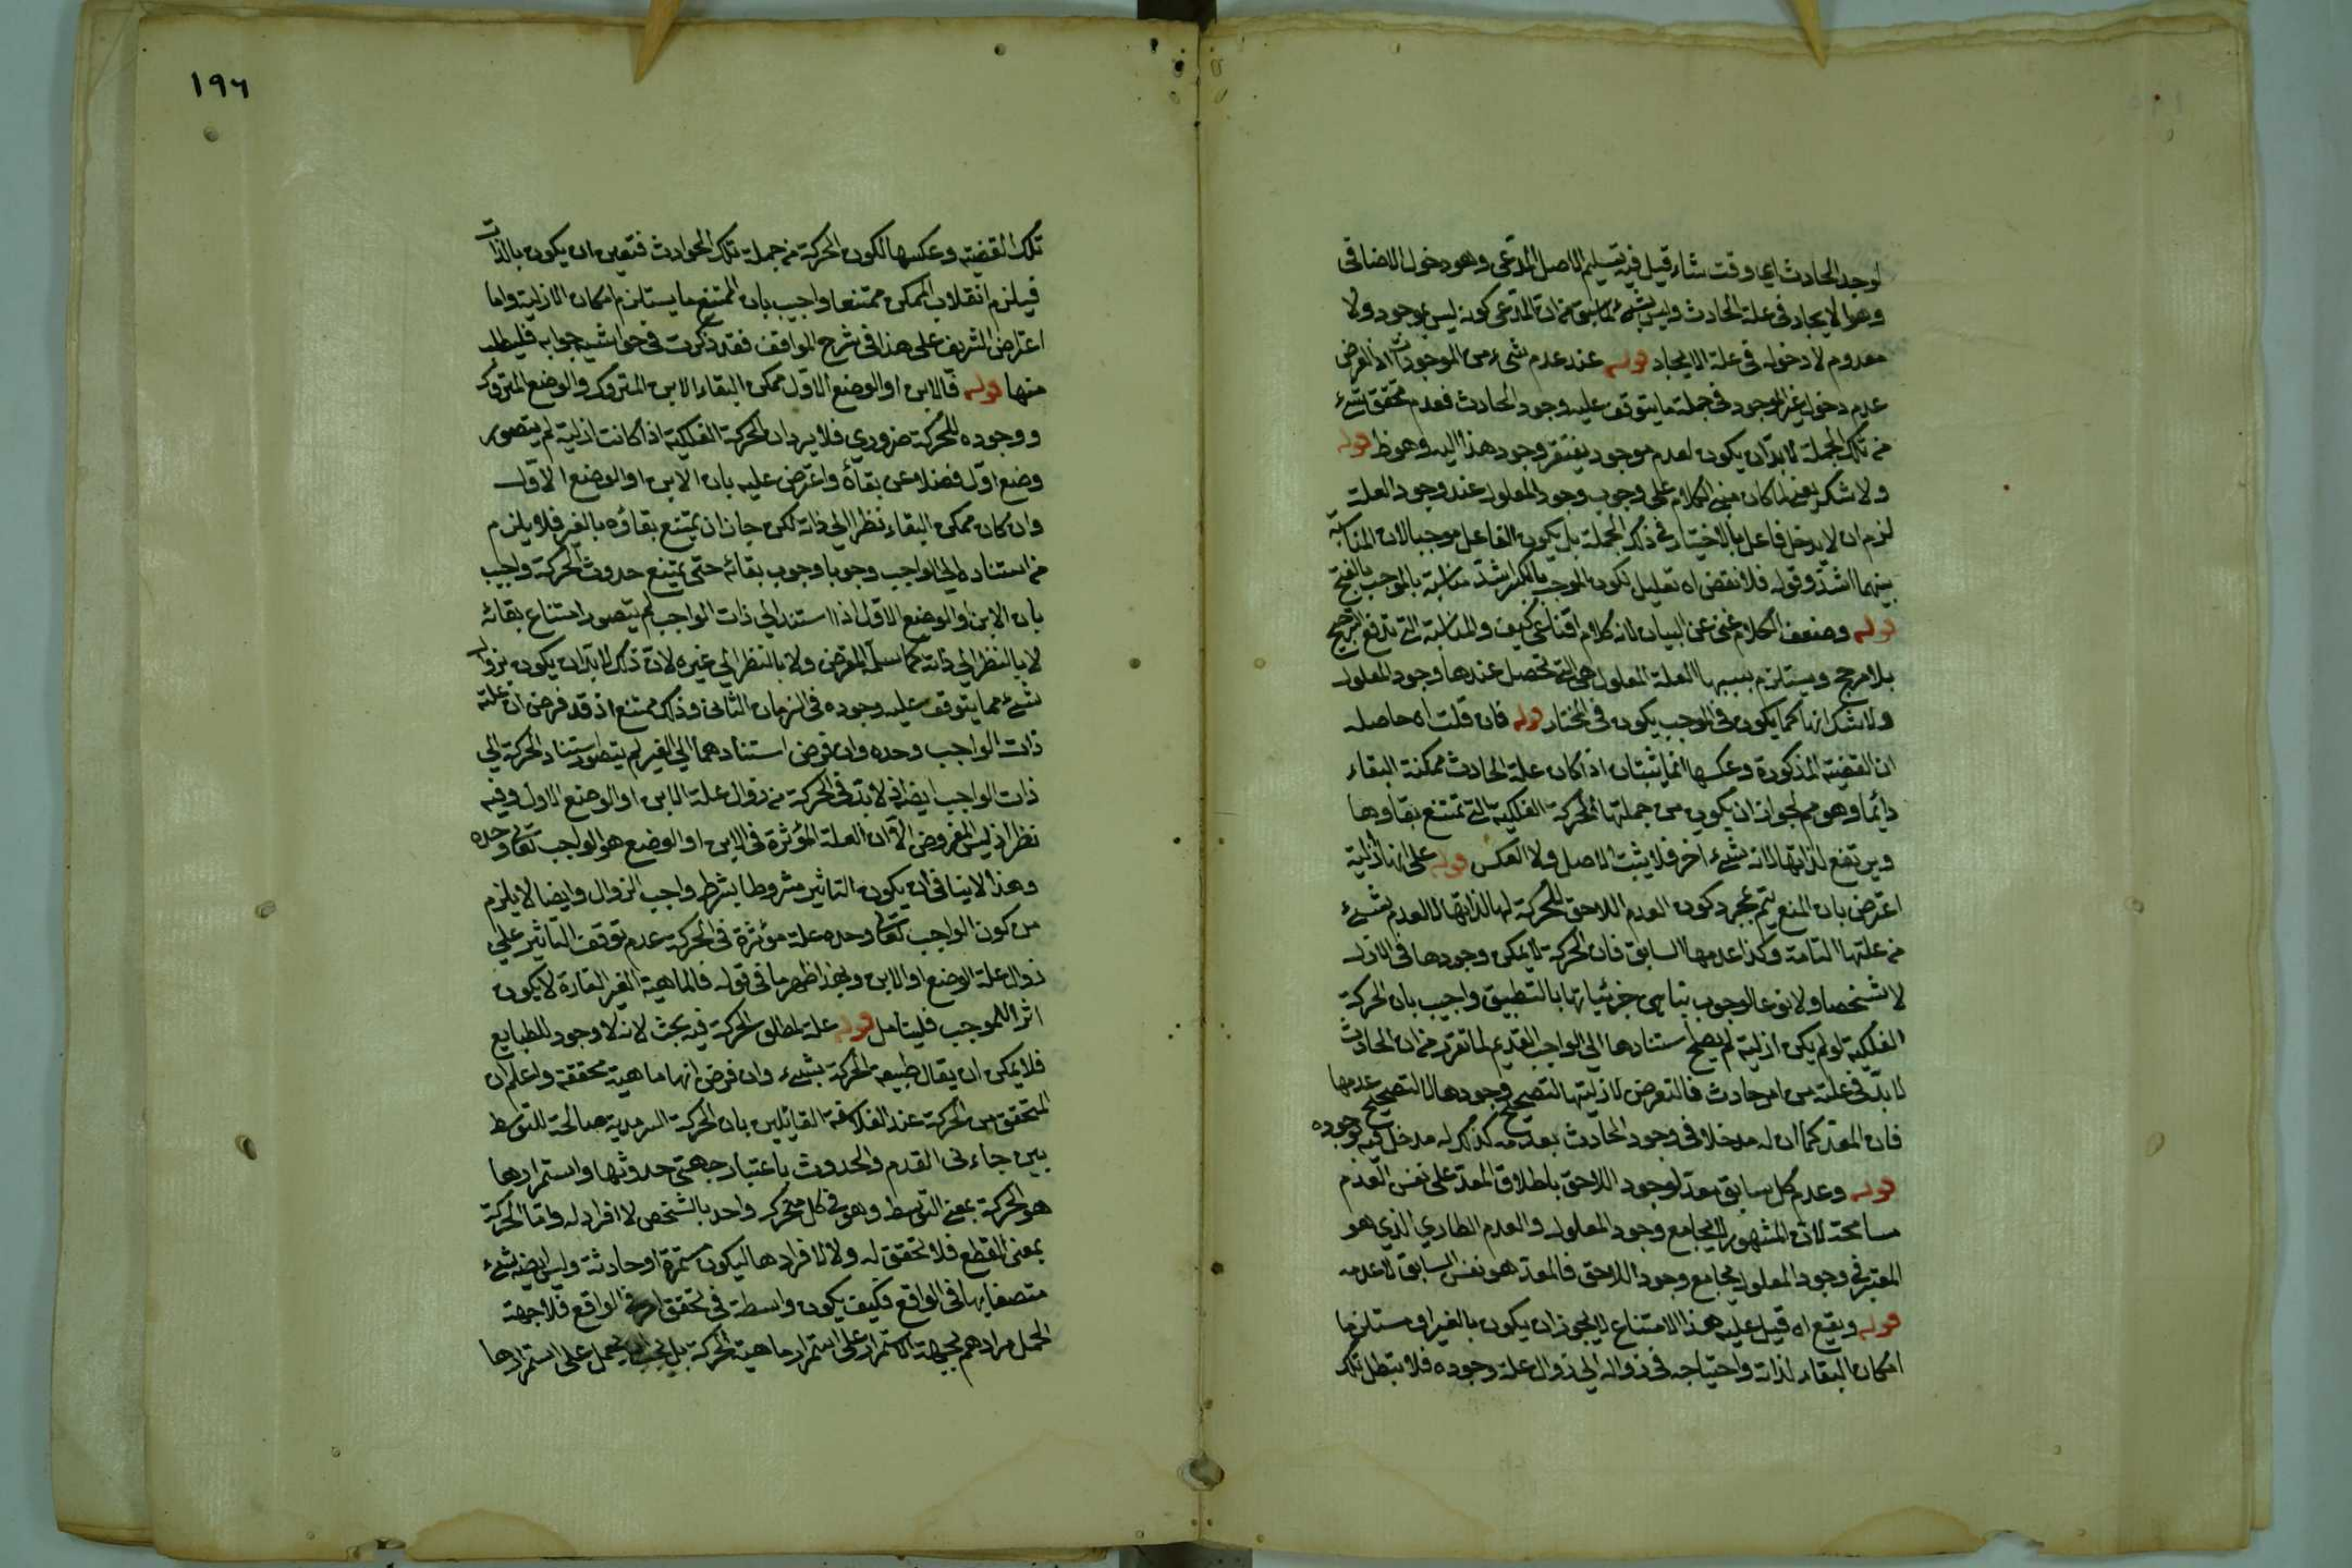 لوجد الحادث اي وقت شاء قيل فيه تسليم الاصل المدعى وهو دخول الاضافى
وهو الايجاد فى علة الحادث وليس بشئ لما سبق من ان المدعى كونه ليس بموجود ولا
معدوم لا دخوله فى علة الايجاد قوله عند عدم شىء من الموجودات اذ الغرض
عدم دخول غير الموجود فى جملة ما يتوقف عليه وجود الحادث فعدم تحقق شىء
من تلك الجملة لا بد ان يكون لعدم موجود يفتقر وجود هذا اليه وهو ظ قوله
ولا شك يعنى لما كان مبنى الكلام على وجوب وجود المعلول عند وجود العلة
لزم ان لا يدخل فاعل بالاختيار فى ذلك الجملة بل يكون الفاعل موجبا لان المناسبة
بينهما اشد وقوله فلا نقض اه تعليل لكون الموجب بالكسر اشد مناسبة بالموجب بالفتح
قوله وضعف الكلام غنى عن البيان لانه كلام اقناعى كيف والمناسبة التى تدفع الترجيح
بلا مرجح ويستلزم بسببها العلة المعلول هى التى تحصل عندها وجود المعلول
ولا شك انها كما يكون فى الموجب يكون فى المختار قوله فان قلت اه حاصله
ان القضية المذكورة وعكسها انما يثبتان اذا كان علة الحادث ممكنة البقاء
دائما وهو مم لجواز ان يكون من جملتها الحركة الفلكية التى تمتنع بقاؤها
ويرتفع لذاتها لا لانه شىء اخر فلا يثبت الاصل ولا العكس قوله على انها ازلية
اعترض بان المنع يتم بمجرد كون العدم اللاحق للحركة لها لذاتها لا لعدم شىء
من علتها التامة وكذا عدمها السابق فان الحركة لا يمكن وجودها فى الازل
لا شخصا ولا نوعا لوجوب تناهى جزئياتها بالتطبيق واجيب بان الحركة
الفلكية لو لم يكن ازلية لم يصلح استنادها الى الواجب القديم لما تقرر من ان الحادث
لا بد فى علته من امر حادث فالتعرض لازليتها لتصحيح وجودها لا لتصحيح عدمها
فان المعد كما ان له مدخلا فى وجود الحادث بعدمه كذلك له مدخل فيه بوجوده
قوله وعدم كل سابق معد لوجود اللاحق باطلاق المعد على نفس العدم
مسامحة لان المشهور لا يجامع وجود المعلول والعدم الطاري الذي هو
المعتبر فى وجود المعلول يجامع وجود اللاحق فالمعد هو نفس السابق لا عدمه
قوله ويقع اه قيل عليه هذا الامتناع لا يجوز ان يكون بالغير او مستلزما
امكان البقاء لذاته واحتياجه فى زواله الى زوال علة وجوده فلا يتبطل تلك
١٩٦
تلك القضية وعكسها لكون الحركة من جملة تلك الحوادث فتعين ان يكون بالذات
فيلزم انقلاب الممكن ممتنعا واجيب بان الممتنع ما يستلزم امكان الازلية واما
اعتراض الشريف على هذا فى شرح المواقف فقد ذكرت فى حواشيه جوابه فليطلب
منها قوله فالاين او الوضع الاول ممكن البقاء الاين المتروك والوضع المتروك
ووجوده للحركة ضروري فلا يرد ان الحركة الفلكية اذا كانت ازلية لم يتصور
وضع اول فضلا عن بقائه واعترض عليه بان الاين او الوضع الاول
وان كان ممكن البقاء نظرا الى ذاته لكن جاز ان يمتنع بقاؤه بالغير فلا يلزم
من استناده الى الواجب وجوبا وجوب بقائه حتى يمتنع حدوث الحركة واجيب
بان الاين او الوضع الاول اذا استند الى ذات الواجب لم يتصور امتناع بقائه
لا بالنظر الى ذاته كما سلمه المعترض ولا بالنظر الى غيره لان ذلك لا بد ان يكون بزوال
شىء مما يتوقف عليه وجوده فى الزمان الثانى وذلك ممتنع اذ قد فرض ان علته
ذات الواجب وحده وان فرض استنادهما الى الغير لم يتصور استناد الحركة الى
ذات الواجب ايضا اذ لا بد فى الحركة من زوال علة الاين او الوضع الاول وفيه
نظر اذ ليس المفروض الا ان العلة المؤثرة فى الاين او الوضع هو الواجب تعالى وحده
وهذا لا ينافى ان يكون التاثير مشروطا بشرط واجب الزوال وايضا لا يلزم
من كون الواجب تعالى وحده علة مؤثرة فى الحركة عدم توقف التاثير على
زوال علة الوضع او الاين وبهذا ظهر ما فى قوله فالماهية الغير القارة لا يكون
اثرا للموجب فليتامل قوله علة لمطلق الحركة فيه بحث لانه لا وجود للطبايع
فلا يمكن ان يقال طبيعة الحركة بشىء وان فرض انها ماهية محققة واعلم ان
المتحقق من الحركة عند الفلاسفة القائلين بان الحركة السرمدية صالحة للتوسط
بين جاءنى القدم والحدوث باعتبار جهتى حدوثها واستمرارها
هو الحركة بمعنى التوسط وهو فى كل متحرك واحد بالشخص لا افراد له واما الحركة
بمعنى القطع فلا تحقق له ولا لافرادها ليكون مستمرة او حادثة وليس ايضا شىء
متصفا بها فى الواقع فكيف يكون واسطة فى تحقق امر فى الواقع فلا جهة
لحمل مرادهم بجهة الاستمرار على استمرار ماهية الحركة بل يجب ان يحمل على استمرارها